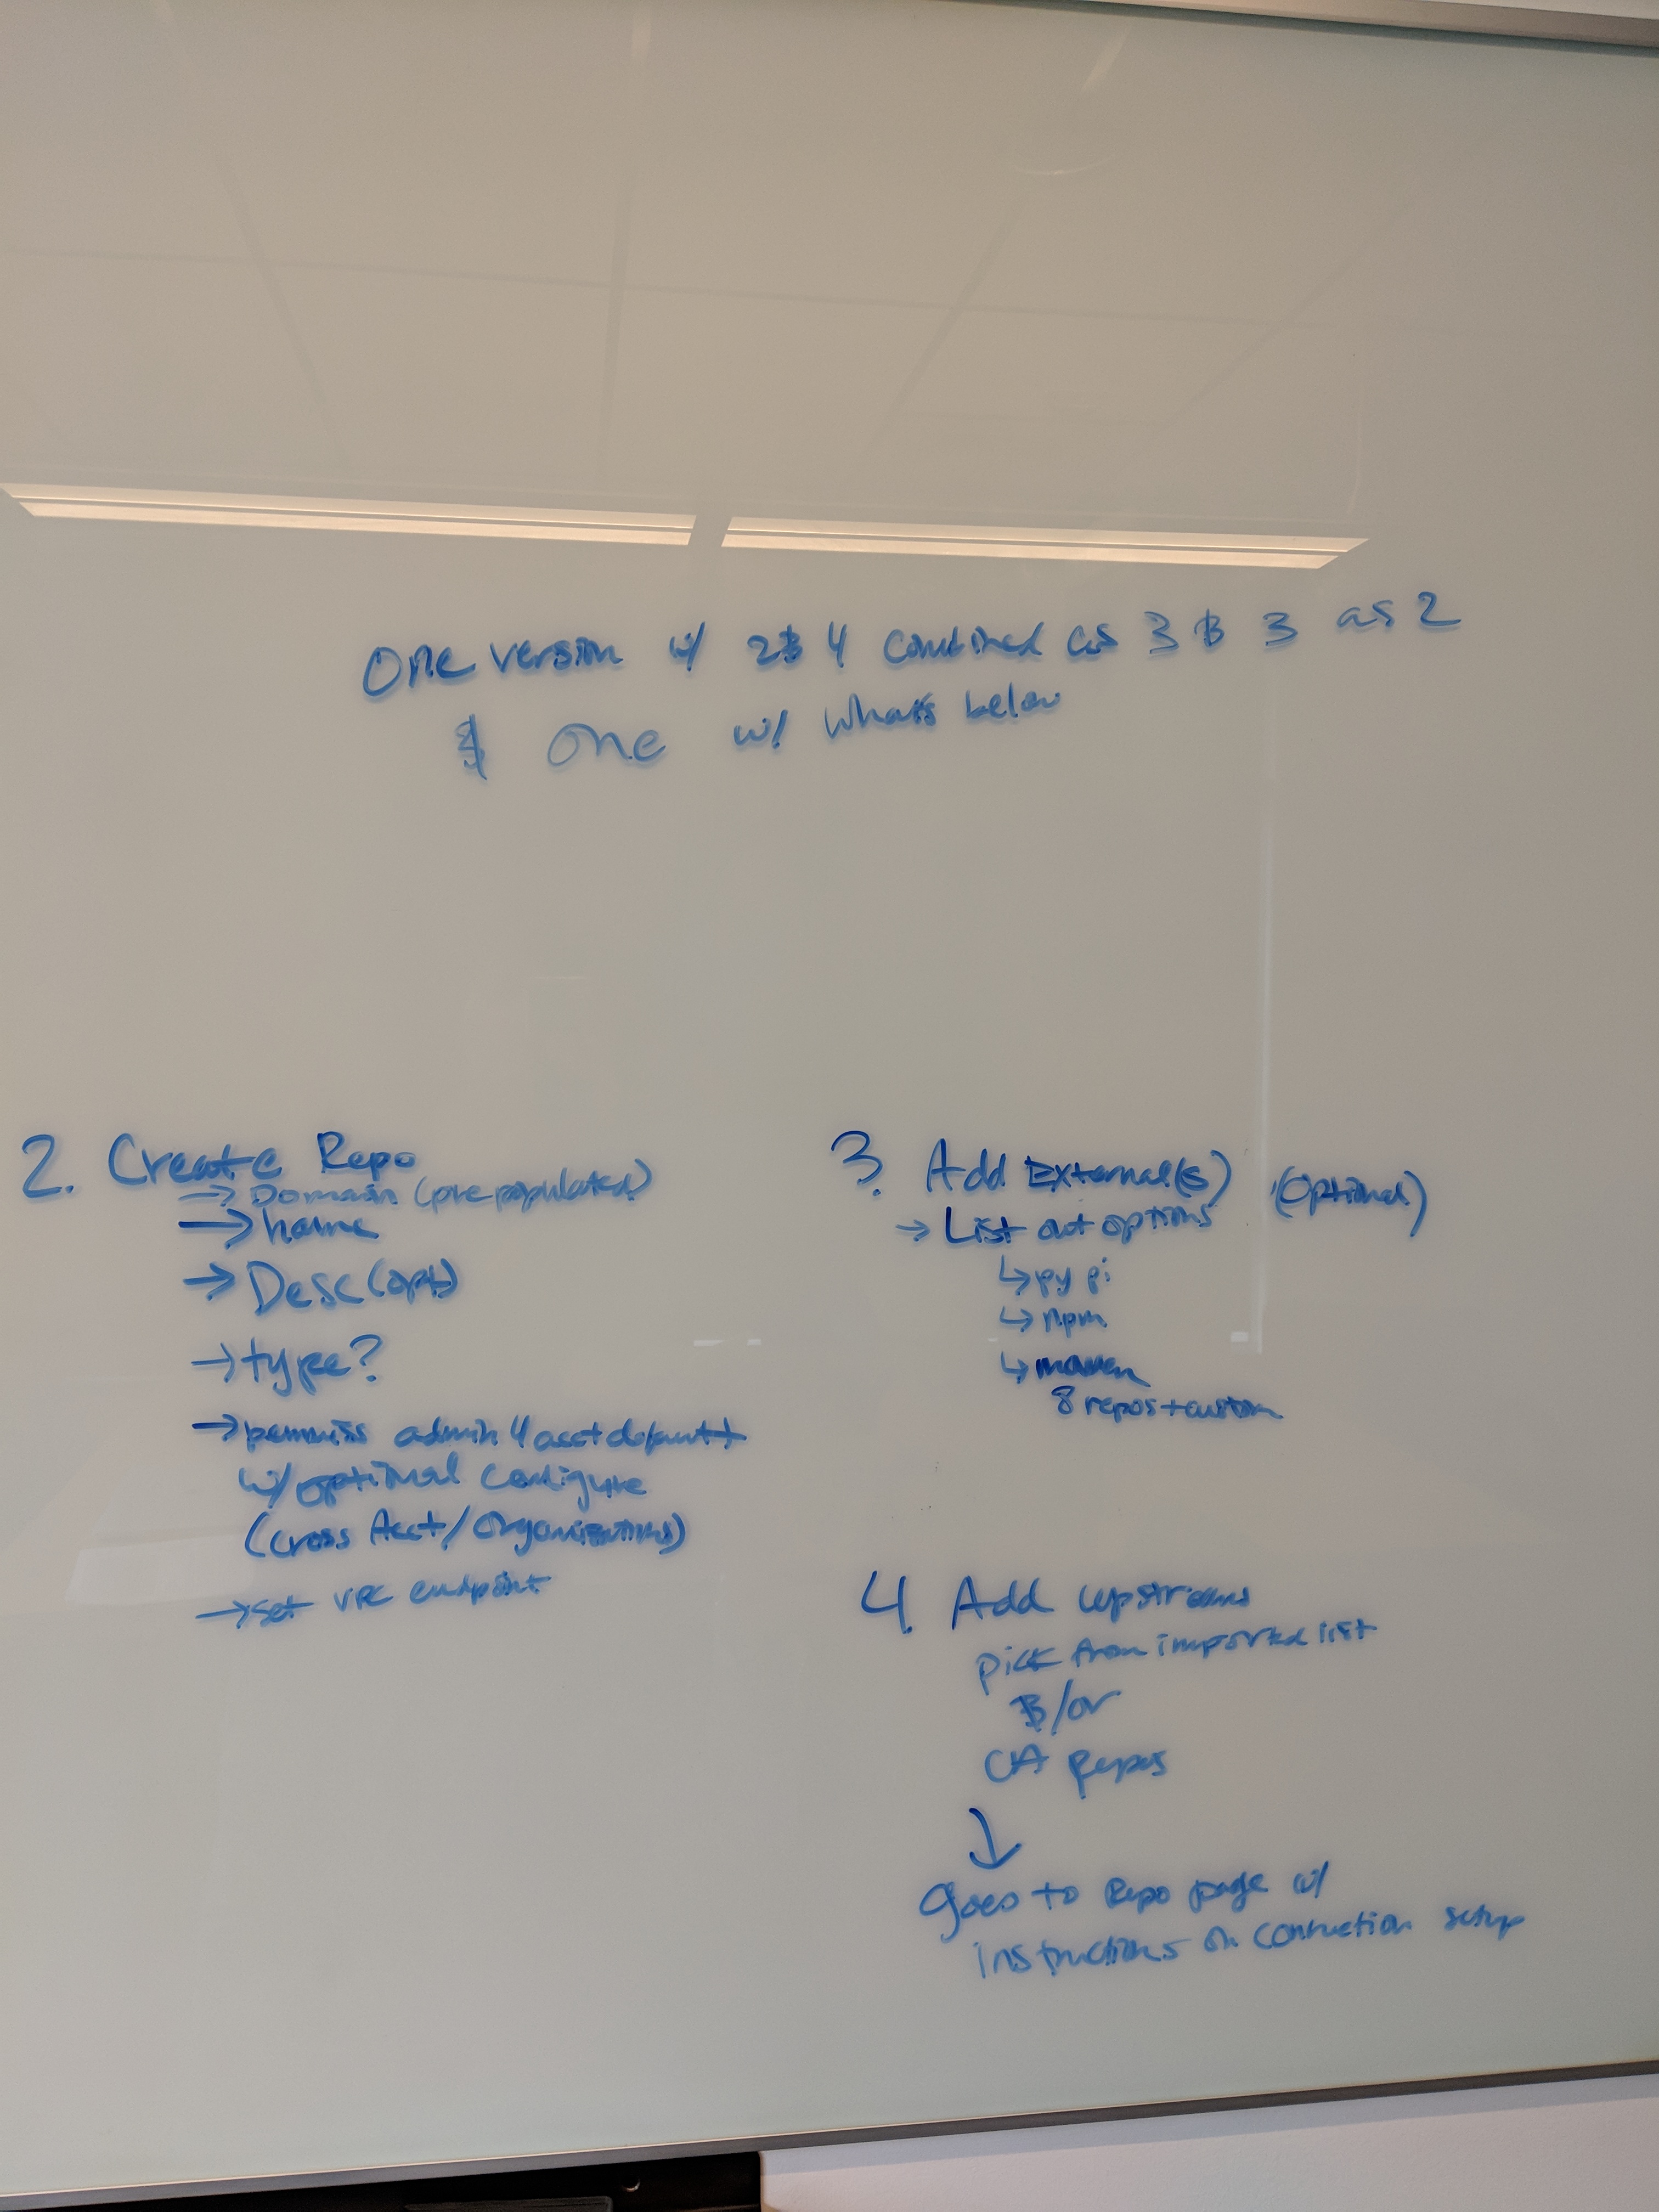 One version w/ 2 & 4 combined as 3 & 3 as 2
& one w/ what's below
2. Create Repo
→ Domain (prepopulated)
→ name
→ Desc (opt)
→ type?
→ permiss admin 4 acct default
w/ optional configure
(cross Acct/Organizations)
→ set VPC endpoint
3. Add External(s) (Optional)
→ List out options
↳ pypi
↳ npm
↳ maven
8 repos + custom
4. Add upstreams
pick from imported list
&/or
CA Repos
↓
goes to Repo page w/
instructions on connection setup